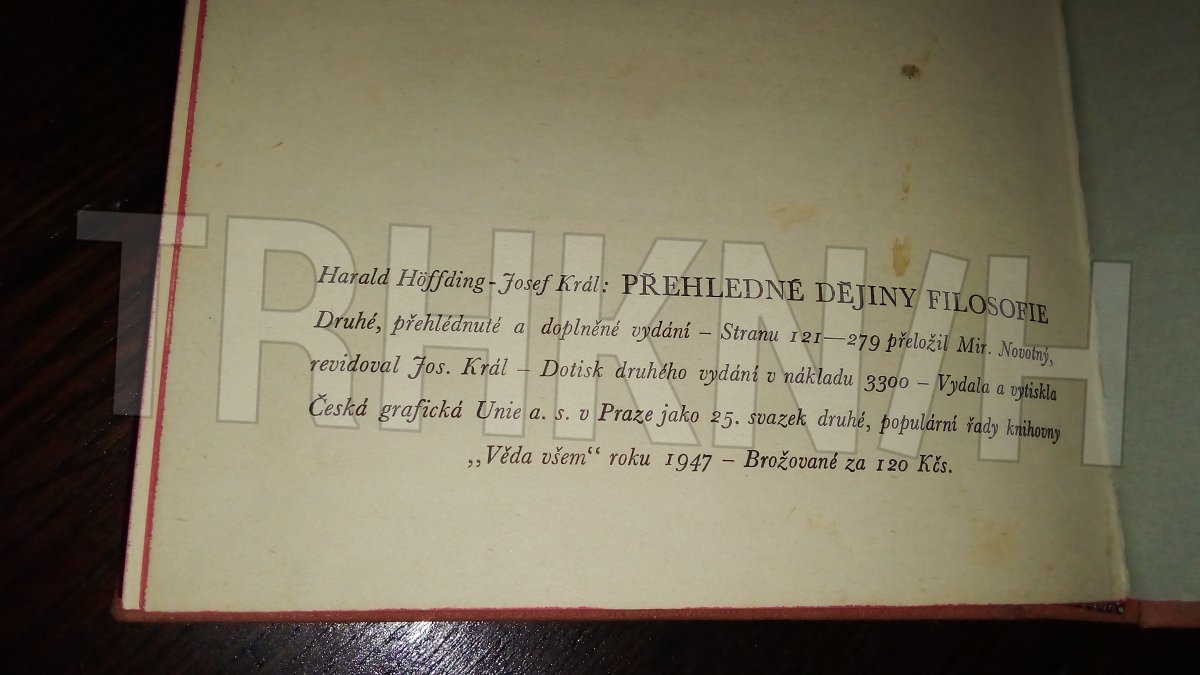 Harald Höffding-Josef Král: PŘEHLEDNÉ DĚJINY FILOSOFIE
Druhé, přehlédnuté a doplněné vydání – Stranu 121—279 přeložil Mir. Novotný,
revidoval Jos. Král – Dotisk druhého vydání v nákladu 3300 – Vydala a vytiskla
Česká grafická Unie a. s. v Praze jako 25. svazek druhé, populární řady knihovny
„Věda všem“ roku 1947 – Brožované za 120 Kčs.
TRHKNIH